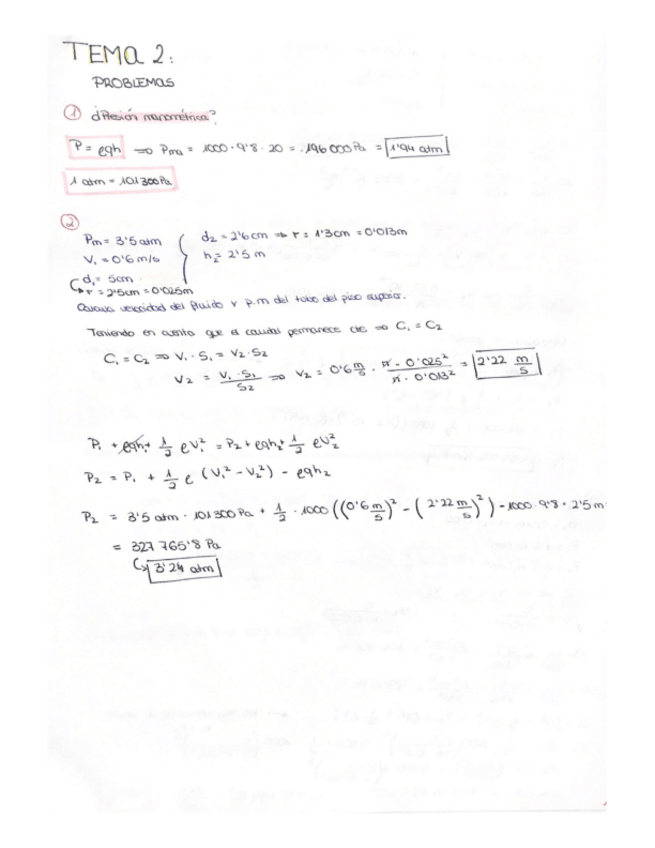 TEMA 2:
PROBLEMAS
① ¿Presión manométrica?
P = ρgh ⇒ Pma = 1000 · 9'8 · 20 = 196000 Pa = 1'94 atm
1 atm = 101300 Pa
②
Pm = 3'5 atm
d2 = 2'6 cm ⇒ r = 1'3cm = 0'013m
V1 = 0'6 m/s
h2 = 2'5 m
d1 = 5cm
↳ r = 2'5cm = 0'025m
Calcula velocidad del fluido y p.m del tubo del piso superior.
Teniendo en cuenta que el caudal permanece cte ⇒ C1 = C2
C1 = C2 ⇒ V1 · S1 = V2 · S2
V2 = V1 · S1 / S2 ⇒ V2 = 0'6 m/s · π · 0'025² / π · 0'013² = 2'22 m/s
P1 + ρgh1 + 1/2 ρV1² = P2 + ρgh2 + 1/2 ρV2²
P2 = P1 + 1/2 ρ (V1² - V2²) - ρgh2
P2 = 3'5 atm · 101300 Pa + 1/2 · 1000 ((0'6 m/s)² - (2'22 m/s)²) - 1000 · 9'8 · 2'5 m
= 327 765'8 Pa
↳ 3'24 atm